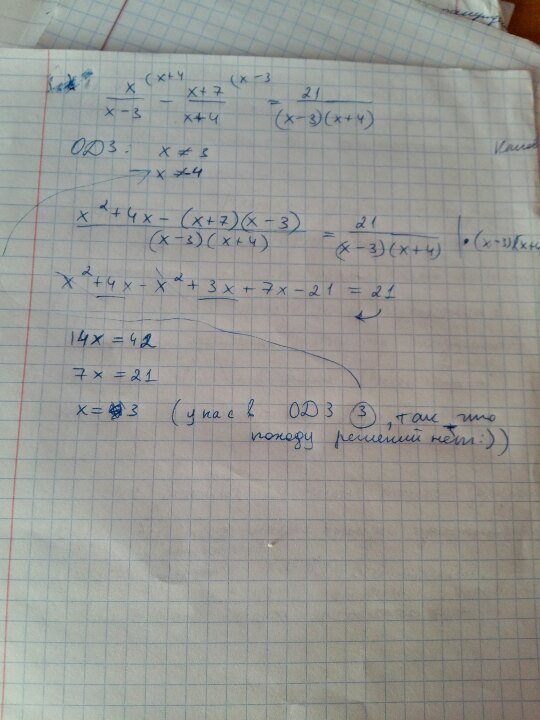 x/(x-3) (x+4 - (x+7)/(x+4) (x-3 = 21/((x-3)(x+4))
ОДЗ: x ≠ 3
x ≠ -4
(x²+4x-(x+7)(x-3))/((x-3)(x+4)) = 21/((x-3)(x+4)) | •(x-3)(x+4
x²+4x-x²+3x+7x-21 = 21
14x = 42
7x = 21
x = 3 (у нас в ОДЗ 3, так что
походу решений нет:))